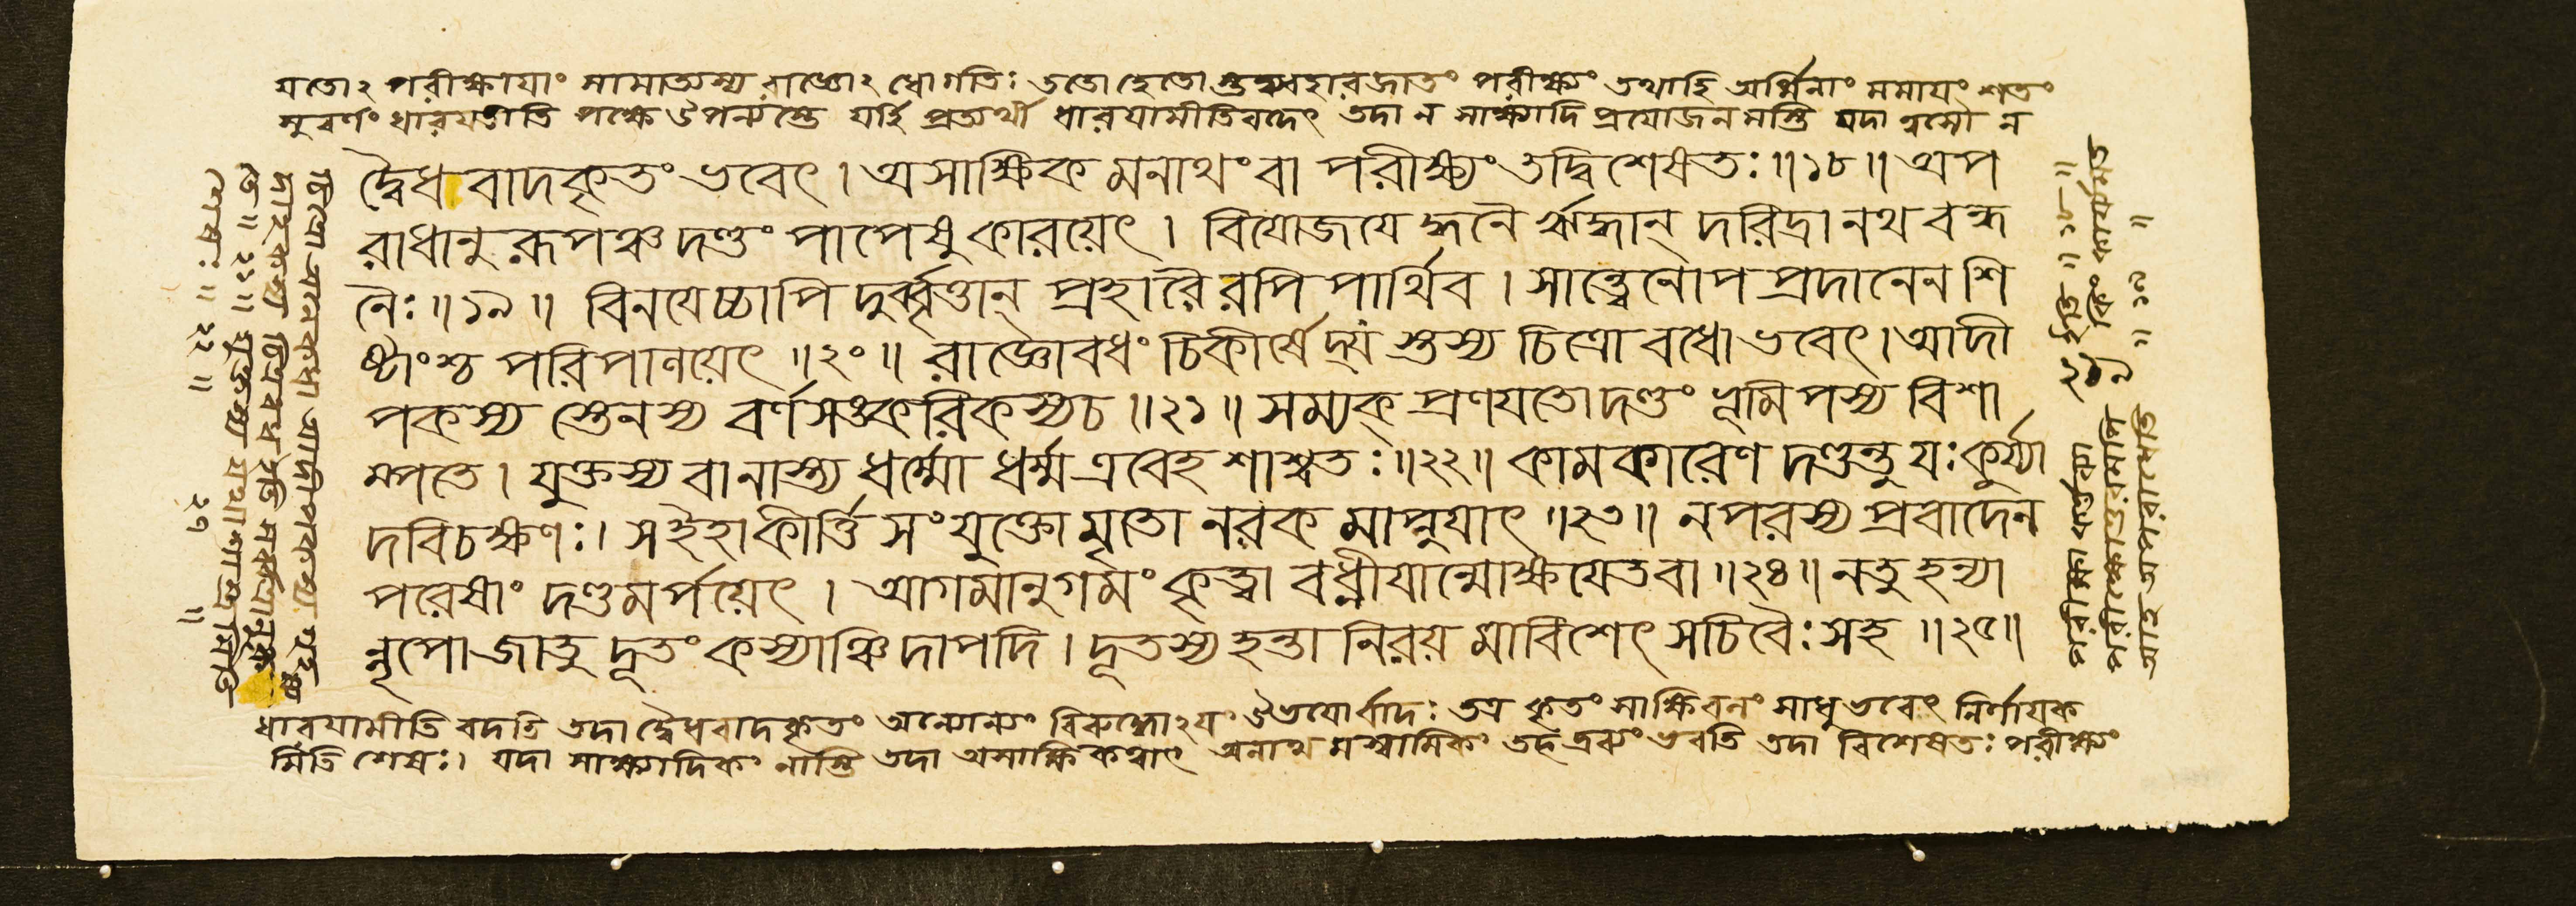 যতোঽ পরীক্ষাযাং সামাত্যস্য রাজ্ঞোঽ ধোগতিঃ ততো হেতো স্তদ্ব্যবহারজাতং পরীক্ষ্যং তথাহি অর্থিনাং মমাযং শতং
সুবর্ণং ধারযতীতি পক্ষে উপন্যস্তে যর্হি প্রত্যর্থী ধারযামীতিবদেৎ তদা ন সাক্ষ্যাদি প্রযোজনমস্তি যদা ত্বসৌ ন
দ্বৈধ বাদকৃতং ভবেৎ । অসাক্ষিক মনাথং বা পরীক্ষ্যং তদ্বিশেষতঃ ॥১৮॥ অপ
রাধানু রূপঞ্চ দণ্ডং পাপেষু কারয়েৎ । বিযোজযে দ্ধনৈ র্ঋদ্ধান্ দরিদ্রা নথ বন্ধ
নৈঃ ॥১৯॥ বিনযেচ্চাপি দুর্ব্বৃত্তান্ প্রহারৈ রপি পার্থিব । সান্ত্বেনোপ প্রদানেন শি
ষ্টাংশ্চ পরিপালয়েৎ ॥২০॥ রাজ্ঞোবধং চিকীর্ষে দ্য স্তস্য চিত্রো বধো ভবেৎ । আদী
পকস্য স্তেনস্য বর্ণসঙ্করিকস্যচ ॥২১॥ সম্যক্ প্রণযতো দণ্ডং ভূমিপস্য বিশা
ম্পতে । যুক্তস্য বা নাস্ত্য ধর্ম্মো ধর্ম্ম এবেহ শাশ্বতঃ ॥২২॥ কামকারেণ দণ্ডন্তু যঃ কুর্য্যা
দবিচক্ষণঃ । সইহাকীর্ত্তি সংযুক্তো মৃতো নরক মাপ্নুযাৎ ॥২৩॥ নপরস্য প্রবাদেন
পরেষাং দণ্ডমর্পয়েৎ । আগমানুগমং কৃত্বা বধ্নীযান্মোক্ষযেতবা ॥২৪॥ নতু হন্যা
ন্নৃপো জাতু দূতং কস্যাঞ্চিদাপদি । দূতস্য হন্তা নিরয় মাবিশেৎ সচিবৈঃ সহ ॥২৫॥
ধারযামীতি বদতি তদা দ্বৈধবাদকৃতং অন্যোন্যং বিরুদ্ধোঽযং উভযোর্বাদঃ তত্র কৃতং সাক্ষিবলং সাধু ভবেৎ নির্ণাযক
মিতি শেষঃ । যদা সাক্ষ্যাদিকং নাস্তি তদা অসাক্ষিকত্বাৎ অনাথ মস্বামিকং ভবতি তদা বিশেষতঃ পরীক্ষ্যং
চিত্রো অনেকধা আদীপকস্য গৃহ
দাহকস্য চিত্রবধ ইতি
॥ ২১ ॥ যুক্তস্য যথাশাস্ত্রমিতি
শেষঃ ॥ ২২ ॥ ২৭ ॥
পরীক্ষা কর্ত্তব্যা
আহ অপরাধেতি
॥ ১৮ ॥
॥ ১৯ ॥